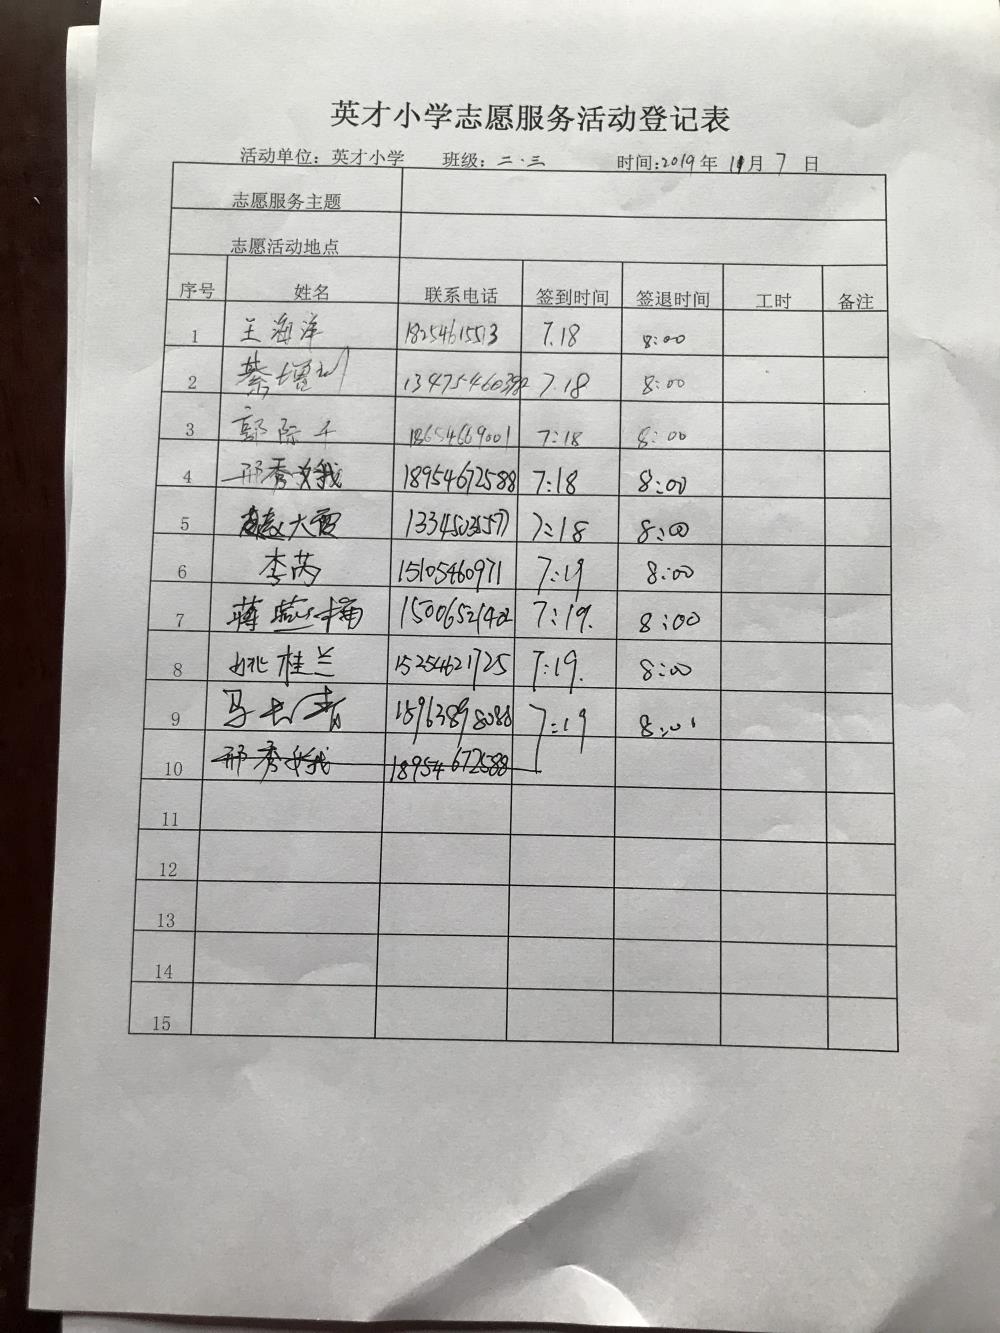 英才小学志愿服务活动登记表
活动单位：英才小学 班级：二.三 时间:2019年11月7日
志愿服务主题
志愿活动地点
序号 姓名 联系电话 签到时间 签退时间 工时 备注
1 王海洋 18254615513 7.18 8:00
2 13475460392 7.18 8:00
3 郭际千 18654669001 7:18 8:00
4 邢秀娥 18954672588 7:18 8:00
5 大霞 13345035577 7:18 8:00
6 李芮 15105460971 7:19 8:00
7 蒋 楠 15006521402 7:19. 8:00
8 姚桂兰 15254621725 7:19. 8:00
9 马 15963898088 7:19 8:01
10 邢秀娥 18954672588
11
12
13
14
15